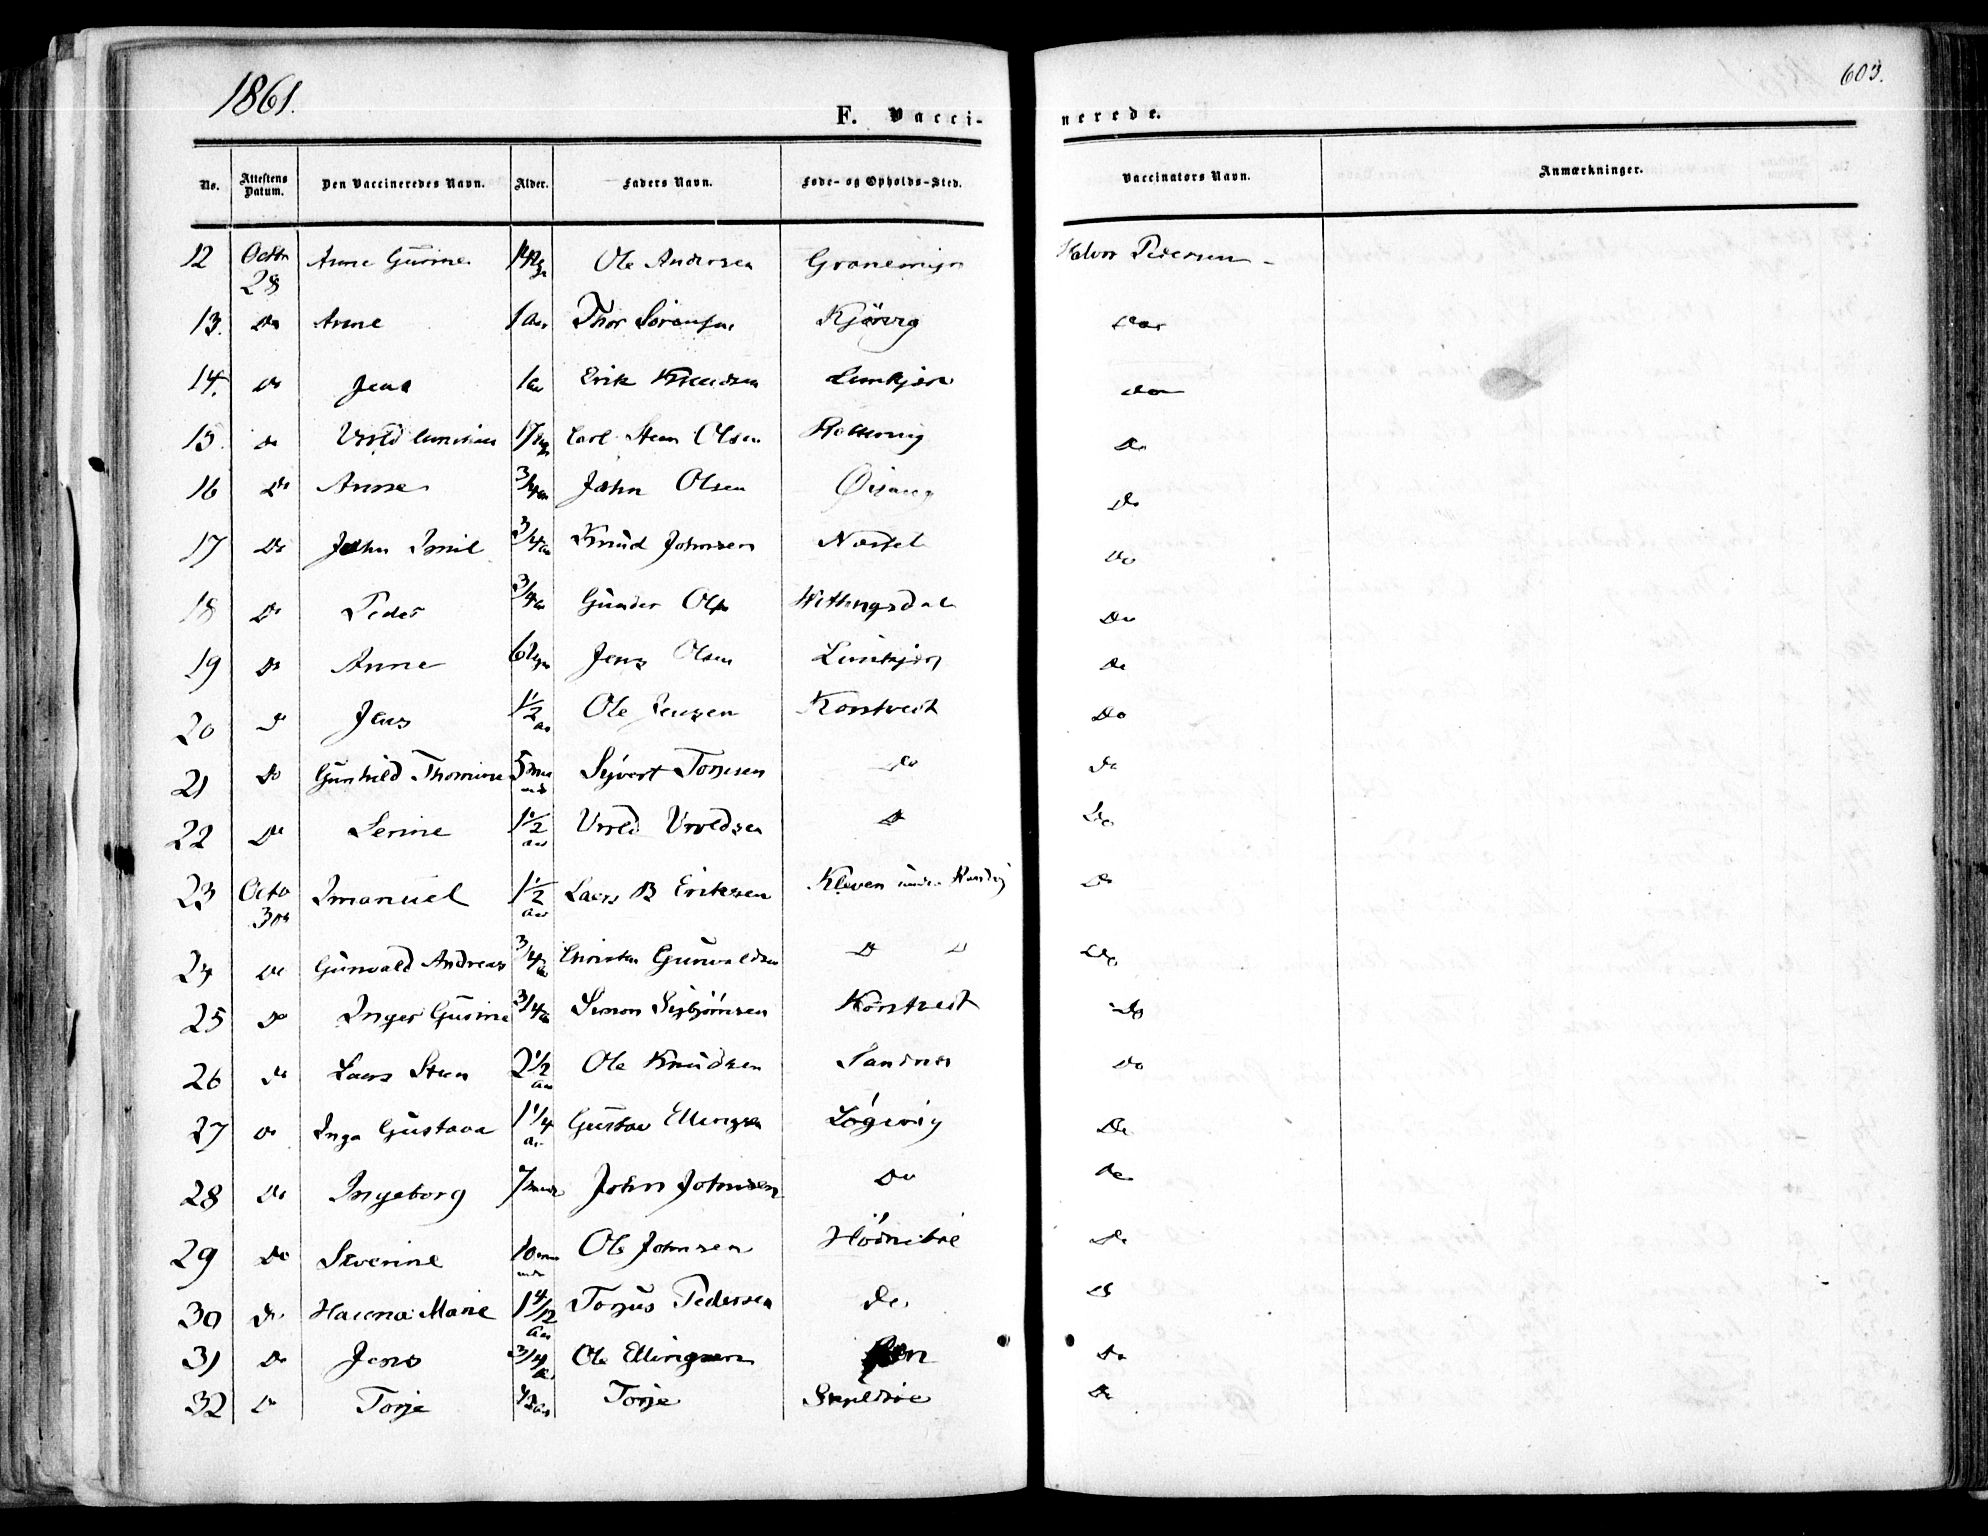 1861.
603.
F. Vacci-
nerede.
No. Attestens Datum. Den Vaccineredes Navn. Alder. Faders Navn. Føde- og Opholds-Sted. Vaccinators Navn. Anmærkninger.
12 Octbr 28 Anne Gurine Ole Andersen Halvor Pedersen
13. Do Anne 1 aar Thor Sörensen Kjörvig Do
14. Do Jens 1 aar Erik Knudsen Lunkjær do
15. Do Vrold Carl Steen Olsen Do
16 Do Anne 3/4 aar John Olsen Do
17 Do John Emil 3/4 aar Knud Johnsen Næstel Do
18 Do Peder 3/4 aar Gunder Olsen Wittingsdal Do
19 Do Anne 6 Uger Jens Olsen Lunkjær Do
20 Do Jens 1 1/2 aar Ole Jensen Korstveit Do
21 Do Gunhild Thomine 5 Maaneder Syvert Torjesen Do Do
22 Do Serine 1 1/2 aar Vrold Vroldsen Do Do
23 Octo 30 Imanuel 1 1/2 aar Laers B Eriksen Kleven under Do
24 Do Gunvald Andreas 3/4 aar Christen Gunvaldsen Do Do Do
25 Do Inger Gusine 3/4 aar Simon Sigbjörnsen Korstveit Do
26 do Laers Steen 2 1/2 aar Ole Knudsen Sandnes Do
27 Do Inga Gustava 1 1/4 aar Gustav Ellingsen Lögevig Do
28 Do Ingeborg 7 John Johnsen Do Do
29 Do Severine 10 Ole Johnsen Hörneboe Do
30 Do Helena Marie 1 4/12 Aar Torjus Pedersen do. Do
31 Do Jens 3/4 Ole Ellingsen Do
32 Do Torje Torje Do